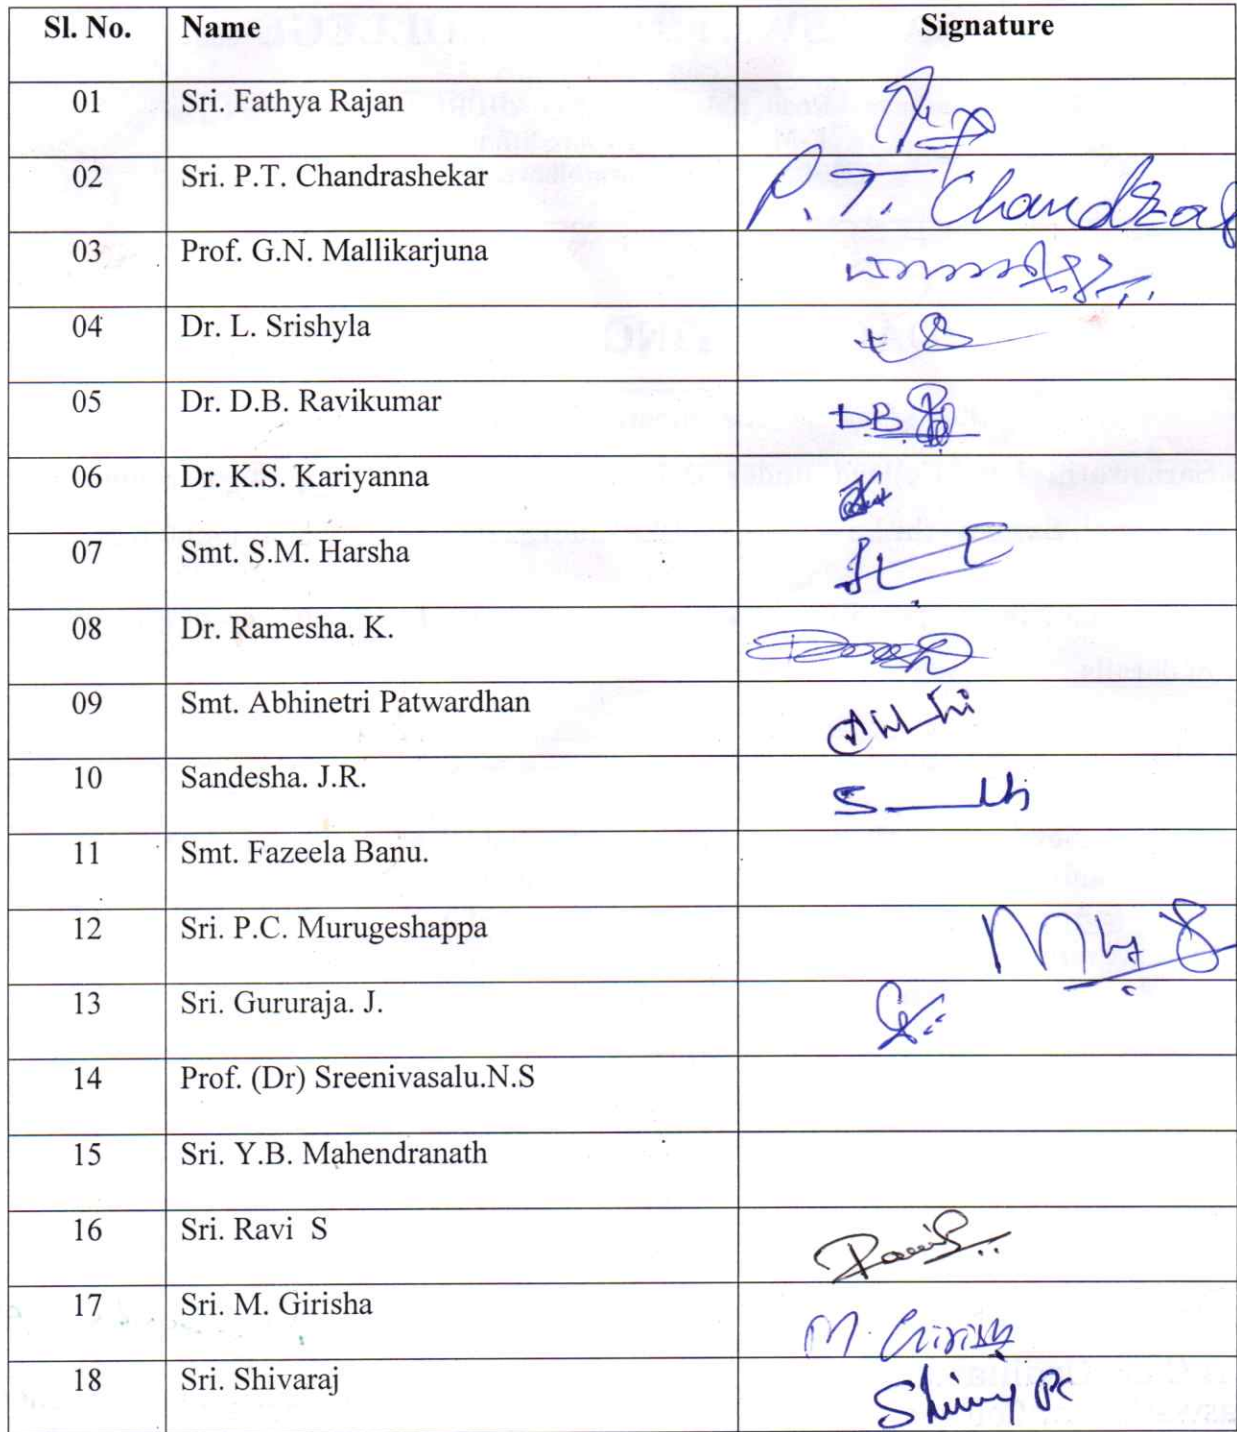 Sl. No. Name Signature
01 Sri. Fathya Rajan
02 Sri. P.T. Chandrashekar P. T. Chandra
03 Prof. G.N. Mallikarjuna
04 Dr. L. Srishyla
05 Dr. D.B. Ravikumar DB
06 Dr. K.S. Kariyanna
07 Smt. S.M. Harsha
08 Dr. Ramesha. K.
09 Smt. Abhinetri Patwardhan
10 Sandesha. J.R.
11 Smt. Fazeela Banu.
12 Sri. P.C. Murugeshappa
13 Sri. Gururaja. J.
14 Prof. (Dr) Sreenivasalu.N.S
15 Sri. Y.B. Mahendranath
16 Sri. Ravi S
17 Sri. M. Girisha M. Girisha
18 Sri. Shivaraj